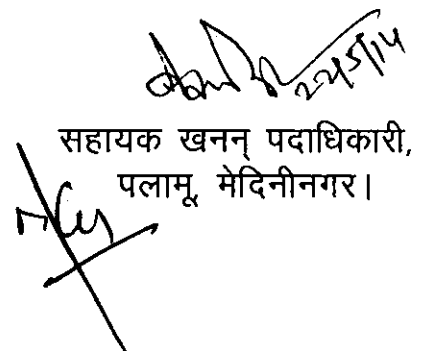 22/5/14
सहायक खनन् पदाधिकारी,
पलामू, मेदिनीनगर।